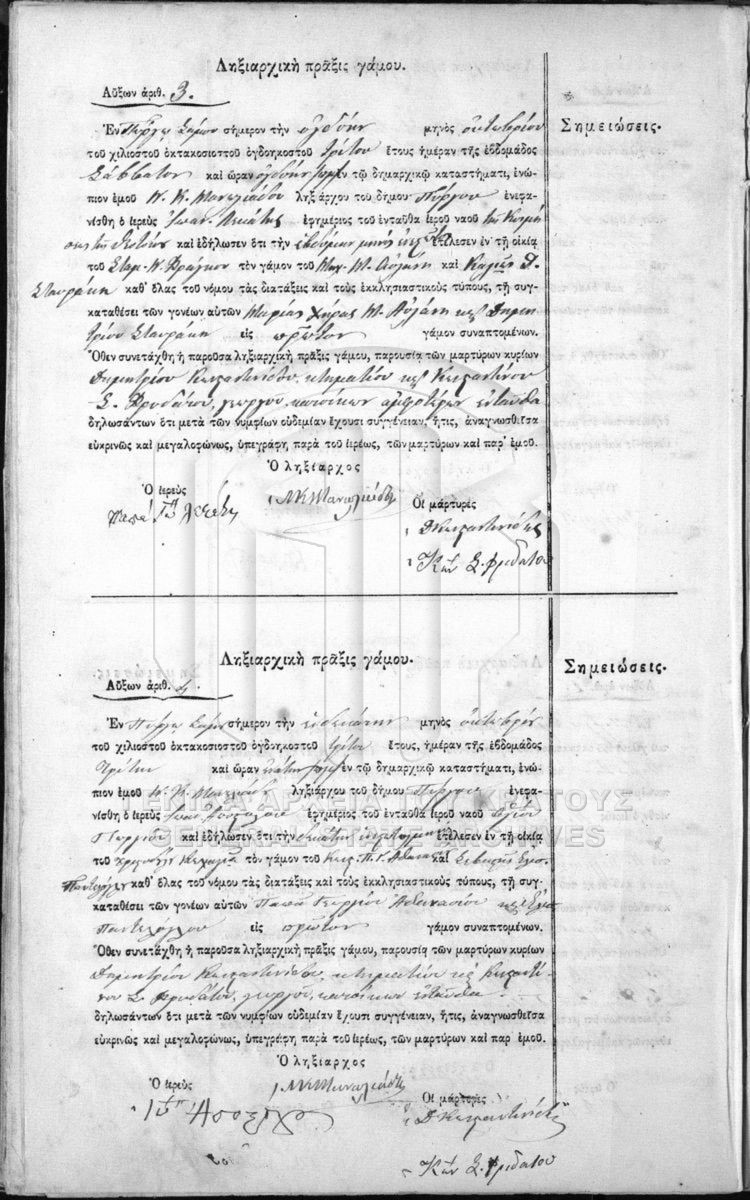 Ληξιαρχικὴ πρᾶξις γάμου.
Αὔξων ἀριθ. 3.
Σημειώσεις.
Ἐν Πύργῳ Σάμου σήμερον τὴν ὀγδόην μηνὸς ὀκτωβρίου
τοῦ χιλιοστοῦ ὀκτακοσιοστοῦ ὀγδοηκοστοῦ τρίτου ἔτους ἡμέραν τῆς ἑβδομάδος
Σάββατον καὶ ὥραν ὀγδόην ἐν τῷ δημαρχικῷ καταστήματι, ἐνώ-
πιον ἐμοῦ Μ. Κ. Μανωλιάδου ληξιάρχου τοῦ δήμου Πύργου ἐνεφα-
νίσθη ὁ ἱερεὺς Ἰωαν. ἐφημέριος τοῦ ἐνταῦθα ἱεροῦ ναοῦ τῆς Κοιμή
σεως τῆς Θεοτόκου καὶ ἐδήλωσεν ὅτι τὴν ἑβδόμην μηνὸς ἐτέλεσεν ἐν τῇ οἰκίᾳ
τοῦ Σταμ. τὸν γάμον τοῦ καὶ Δ.
Σταυράκη καθ' ὅλας τοῦ νόμου τὰς διατάξεις καὶ τοὺς ἐκκλησιαστικοὺς τύπους, τῇ συγ-
καταθέσει τῶν γονέων αὐτῶν Μαρίας χήρας Μ. Δημη
τρίου Σταυράκη εἰς πρῶτον γάμον συναπτομένων.
Ὅθεν συνετάχθη ἡ παροῦσα ληξιαρχικὴ πρᾶξις γάμου, παρουσίᾳ τῶν μαρτύρων κυρίων
Δημητρίου Κωνσταντινίδου, κτηματίου καὶ Κωνσταντίνου
Σ. γεωργοῦ, κατοίκων ἀμφοτέρων ἐνταῦθα
δηλωσάντων ὅτι μετὰ τῶν νυμφίων οὐδεμίαν ἔχουσι συγγένειαν, ἥτις, ἀναγνωσθεῖσα
εὐκρινῶς καὶ μεγαλοφώνως, ὑπεγράφη παρὰ τοῦ ἱερέως, τῶν μαρτύρων καὶ παρ' ἐμοῦ.
Ὁ ληξίαρχος
Ὁ ἱερεὺς Μ Κ Μανωλιάδης Οἱ μάρτυρες
παπᾶ
Δ Κωνσταντινίδης
Κων Σ.
Ληξιαρχικὴ πρᾶξις γάμου.
Σημειώσεις.
Αὔξων ἀριθ. 4.
Ἐν Πύργῳ Σάμου σήμερον τὴν ἑνδεκάτην μηνὸς ὀκτωβρίου
τοῦ χιλιοστοῦ ὀκτακοσιοστοῦ ὀγδοηκοστοῦ τρίτου ἔτους, ἡμέραν τῆς ἑβδομάδος
Τρίτην καὶ ὥραν ἐνάτην ἐν τῷ δημαρχικῷ καταστήματι, ἐνώ-
πιον ἐμοῦ Μ. Κ. Μανωλιάδου ληξιάρχου τοῦ δήμου Πύργου ἐνεφα-
νίσθη ὁ ἱερεὺς ἐφημέριος τοῦ ἐνταῦθα ἱεροῦ ναοῦ Ἁγίου
Γεωργίου καὶ ἐδήλωσεν ὅτι τὴν ἐτέλεσεν ἐν τῇ οἰκίᾳ
τοῦ τὸν γάμον τοῦ καὶ
καθ' ὅλας τοῦ νόμου τὰς διατάξεις καὶ τοὺς ἐκκλησιαστικοὺς τύπους, τῇ συγ-
καταθέσει τῶν γονέων αὐτῶν Παπᾶ Γεωργίου Ἀθανασίου
εἰς πρῶτον γάμον συναπτομένων.
Ὅθεν συνετάχθη ἡ παροῦσα ληξιαρχικὴ πρᾶξις γάμου, παρουσίᾳ τῶν μαρτύρων κυρίων
Δημητρίου Κωνσταντινίδου, κτηματίου καὶ Κωνσταντί-
νου Σ. γεωργοῦ, κατοίκων ἐνταῦθα
δηλωσάντων ὅτι μετὰ τῶν νυμφίων οὐδεμίαν ἔχουσι συγγένειαν, ἥτις, ἀναγνωσθεῖσα
εὐκρινῶς καὶ μεγαλοφώνως, ὑπεγράφη παρὰ τοῦ ἱερέως, τῶν μαρτύρων καὶ παρ ἐμοῦ.
Ὁ ληξίαρχος
Ὁ ἱερεὺς Μ Κ Μανωλιάδης Οἱ μάρτυρες
Δ Κωνσταντινίδης
Κων Σ.
ΓΕΝΙΚΑ ΑΡΧΕΙΑ ΤΟΥ ΚΡΑΤΟΥΣ
GENERAL STATE ARCHIVES